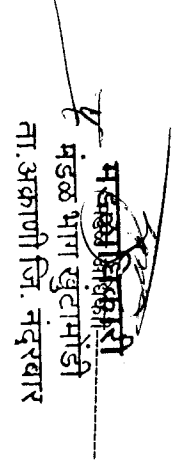 मंडळ अधिकारी
मंडळ भाग खुंटामोडी
ता.अक्राणी जि. नंदूरबार